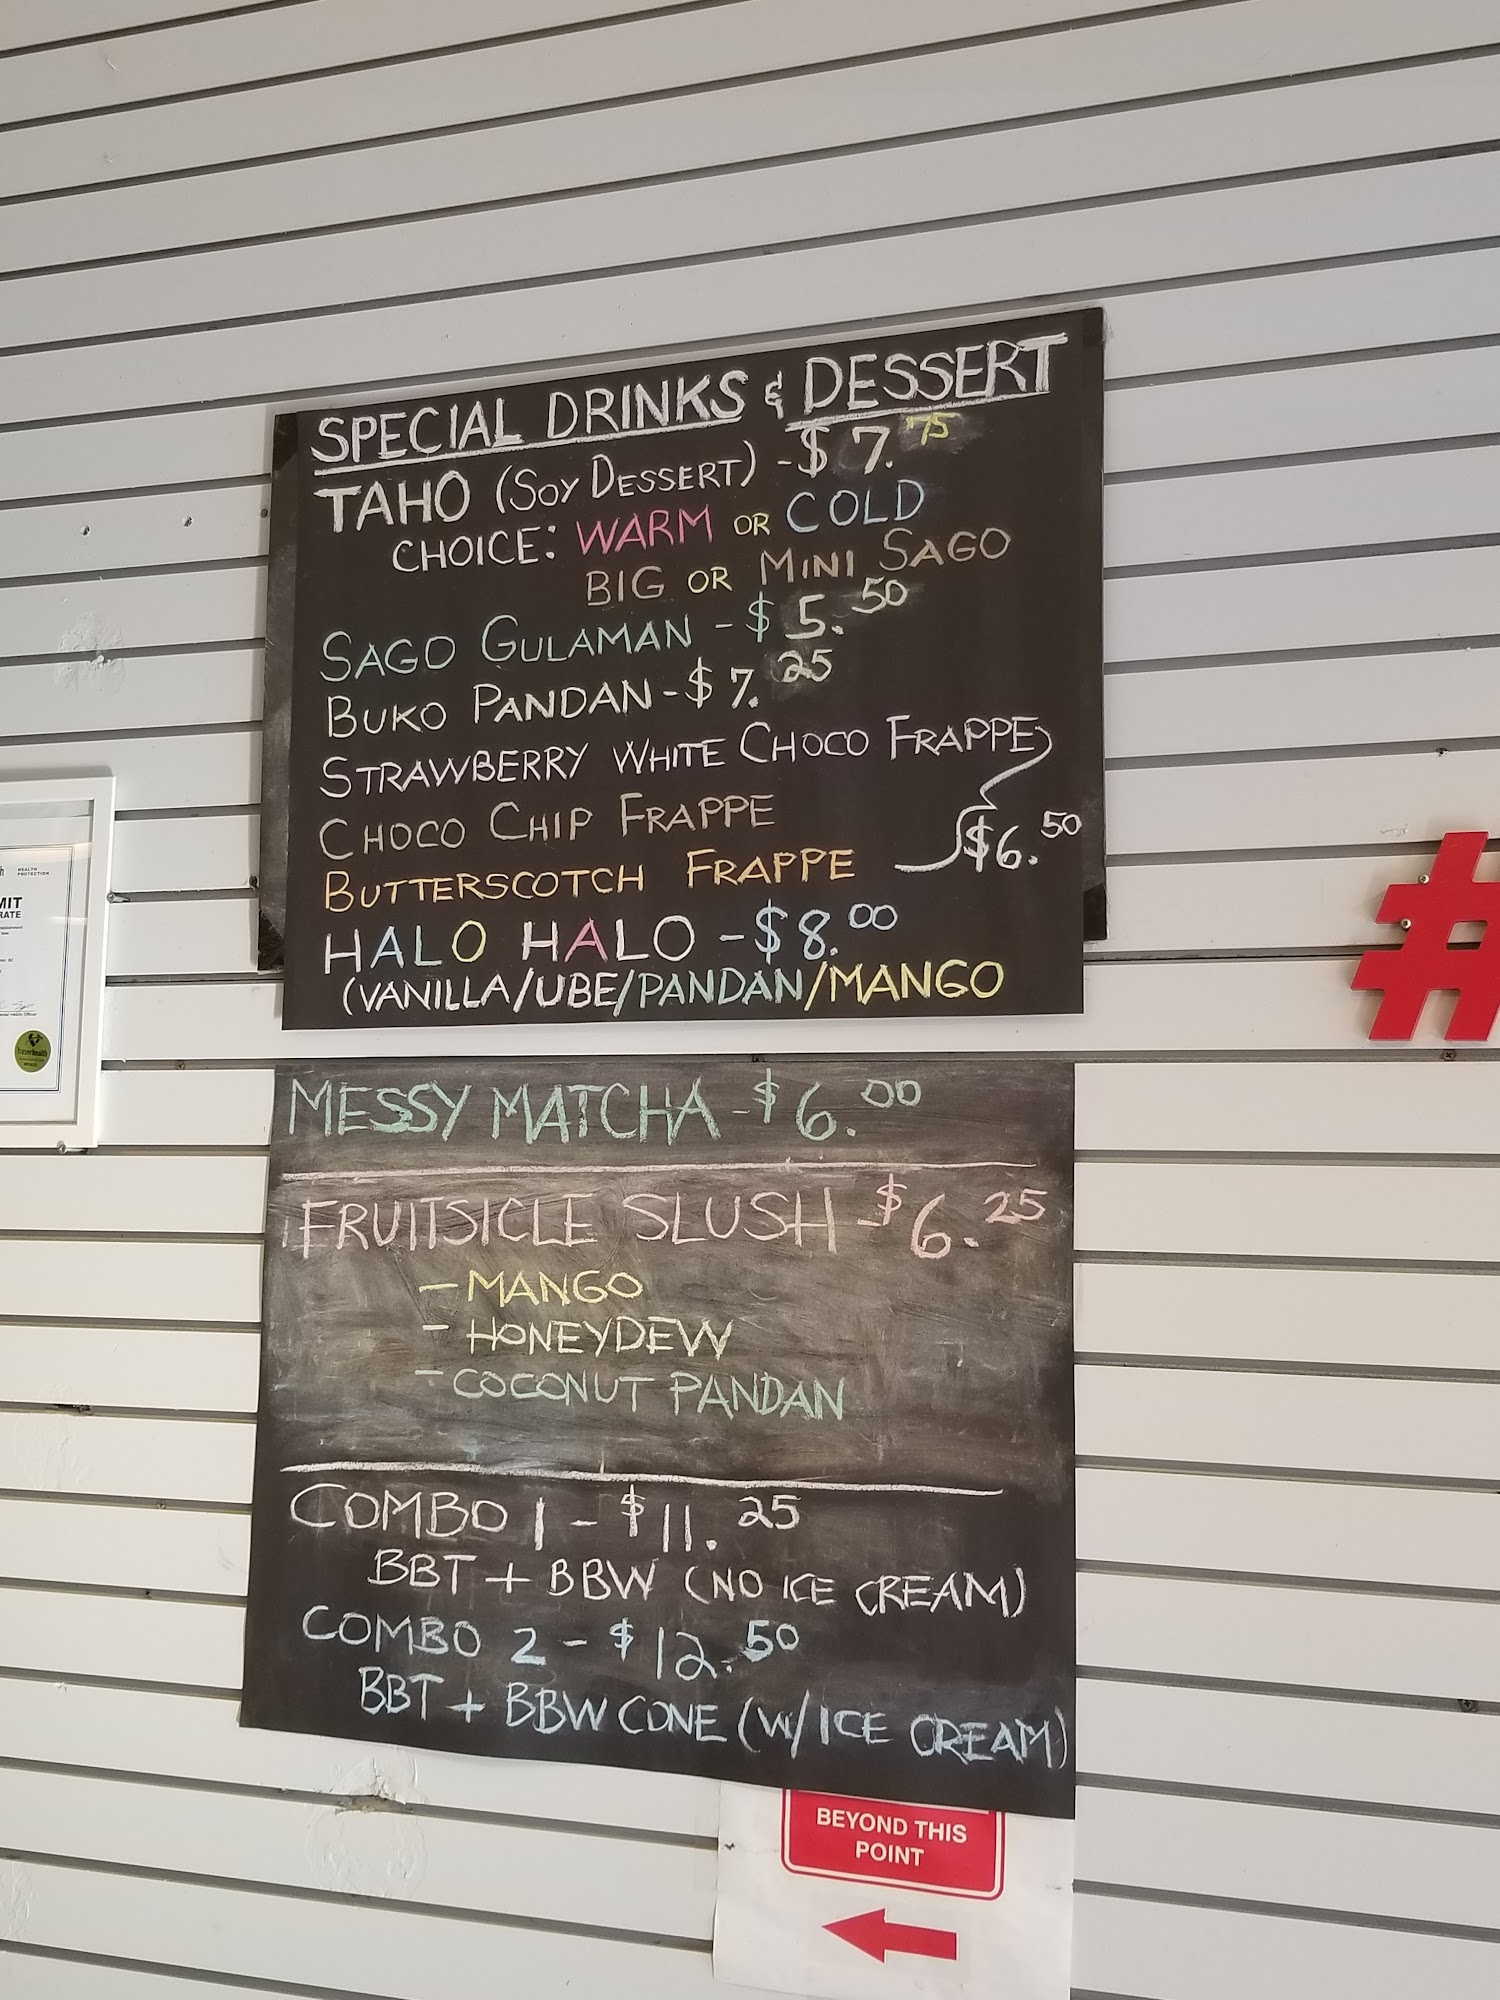 SPECIAL DRINKS & DESSERT
TAHO (SOY DESSERT) - $7.75
CHOICE: WARM OR COLD
BIG OR MINI SAGO
SAGO GULAMAN - $5.50
BUKO PANDAN - $7.25
STRAWBERRY WHITE CHOCO FRAPPE
CHOCO CHIP FRAPPE
$6.50
BUTTERSCOTCH FRAPPE
HALO HALO - $8.00
(VANILLA/UBE/PANDAN/MANGO
MESSY MATCHA - $6.00
FRUITSICLE SLUSH $6.25
- MANGO
- HONEYDEW
- COCONUT PANDAN
COMBO 1 - $11.25
BBT + BBW (NO ICE CREAM)
COMBO 2 - $12.50
BBT + BBW CONE (W/ ICE CREAM)
BEYOND THIS
POINT
#
HEALTH
PROTECTION
MIT
RATE